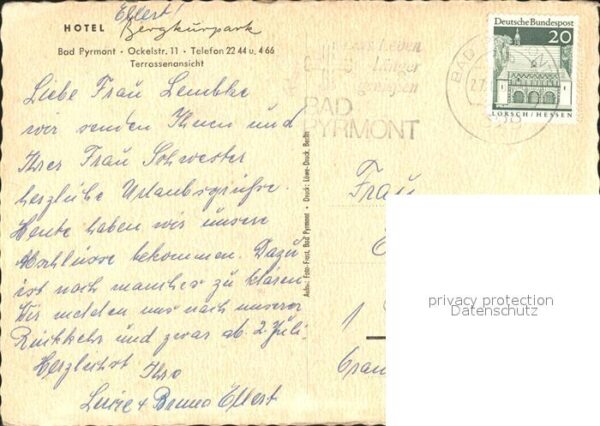 Ellert!
HOTEL Bergkurpark
Bad Pyrmont • Ockelstr. 11 • Telefon 22 44 u. 4 66
Terrassenansicht
Liebe Frau Lembke
wir senden Ihnen und
Ihrer Frau Schwester
herzliche Urlaubsgrüße.
Heute haben wir unsere
Abschlüsse bekommen. Dazu
ist noch mancher zu klären
Wir melden uns nach unserer
Rückkehr und zwar ab. 2 Juli.
Herzlichst Ihre
Luise + Bruno Ellert
Adm.: Foto-Frost, Bad Pyrmont • Druck: Löwe-Druck, Berlin
Leben
länger
BAD
PYRMONT
BAD
Deutsche Bundespost
20
LORSCH/HESSEN
Frau
1
privacy protection
Datenschutz